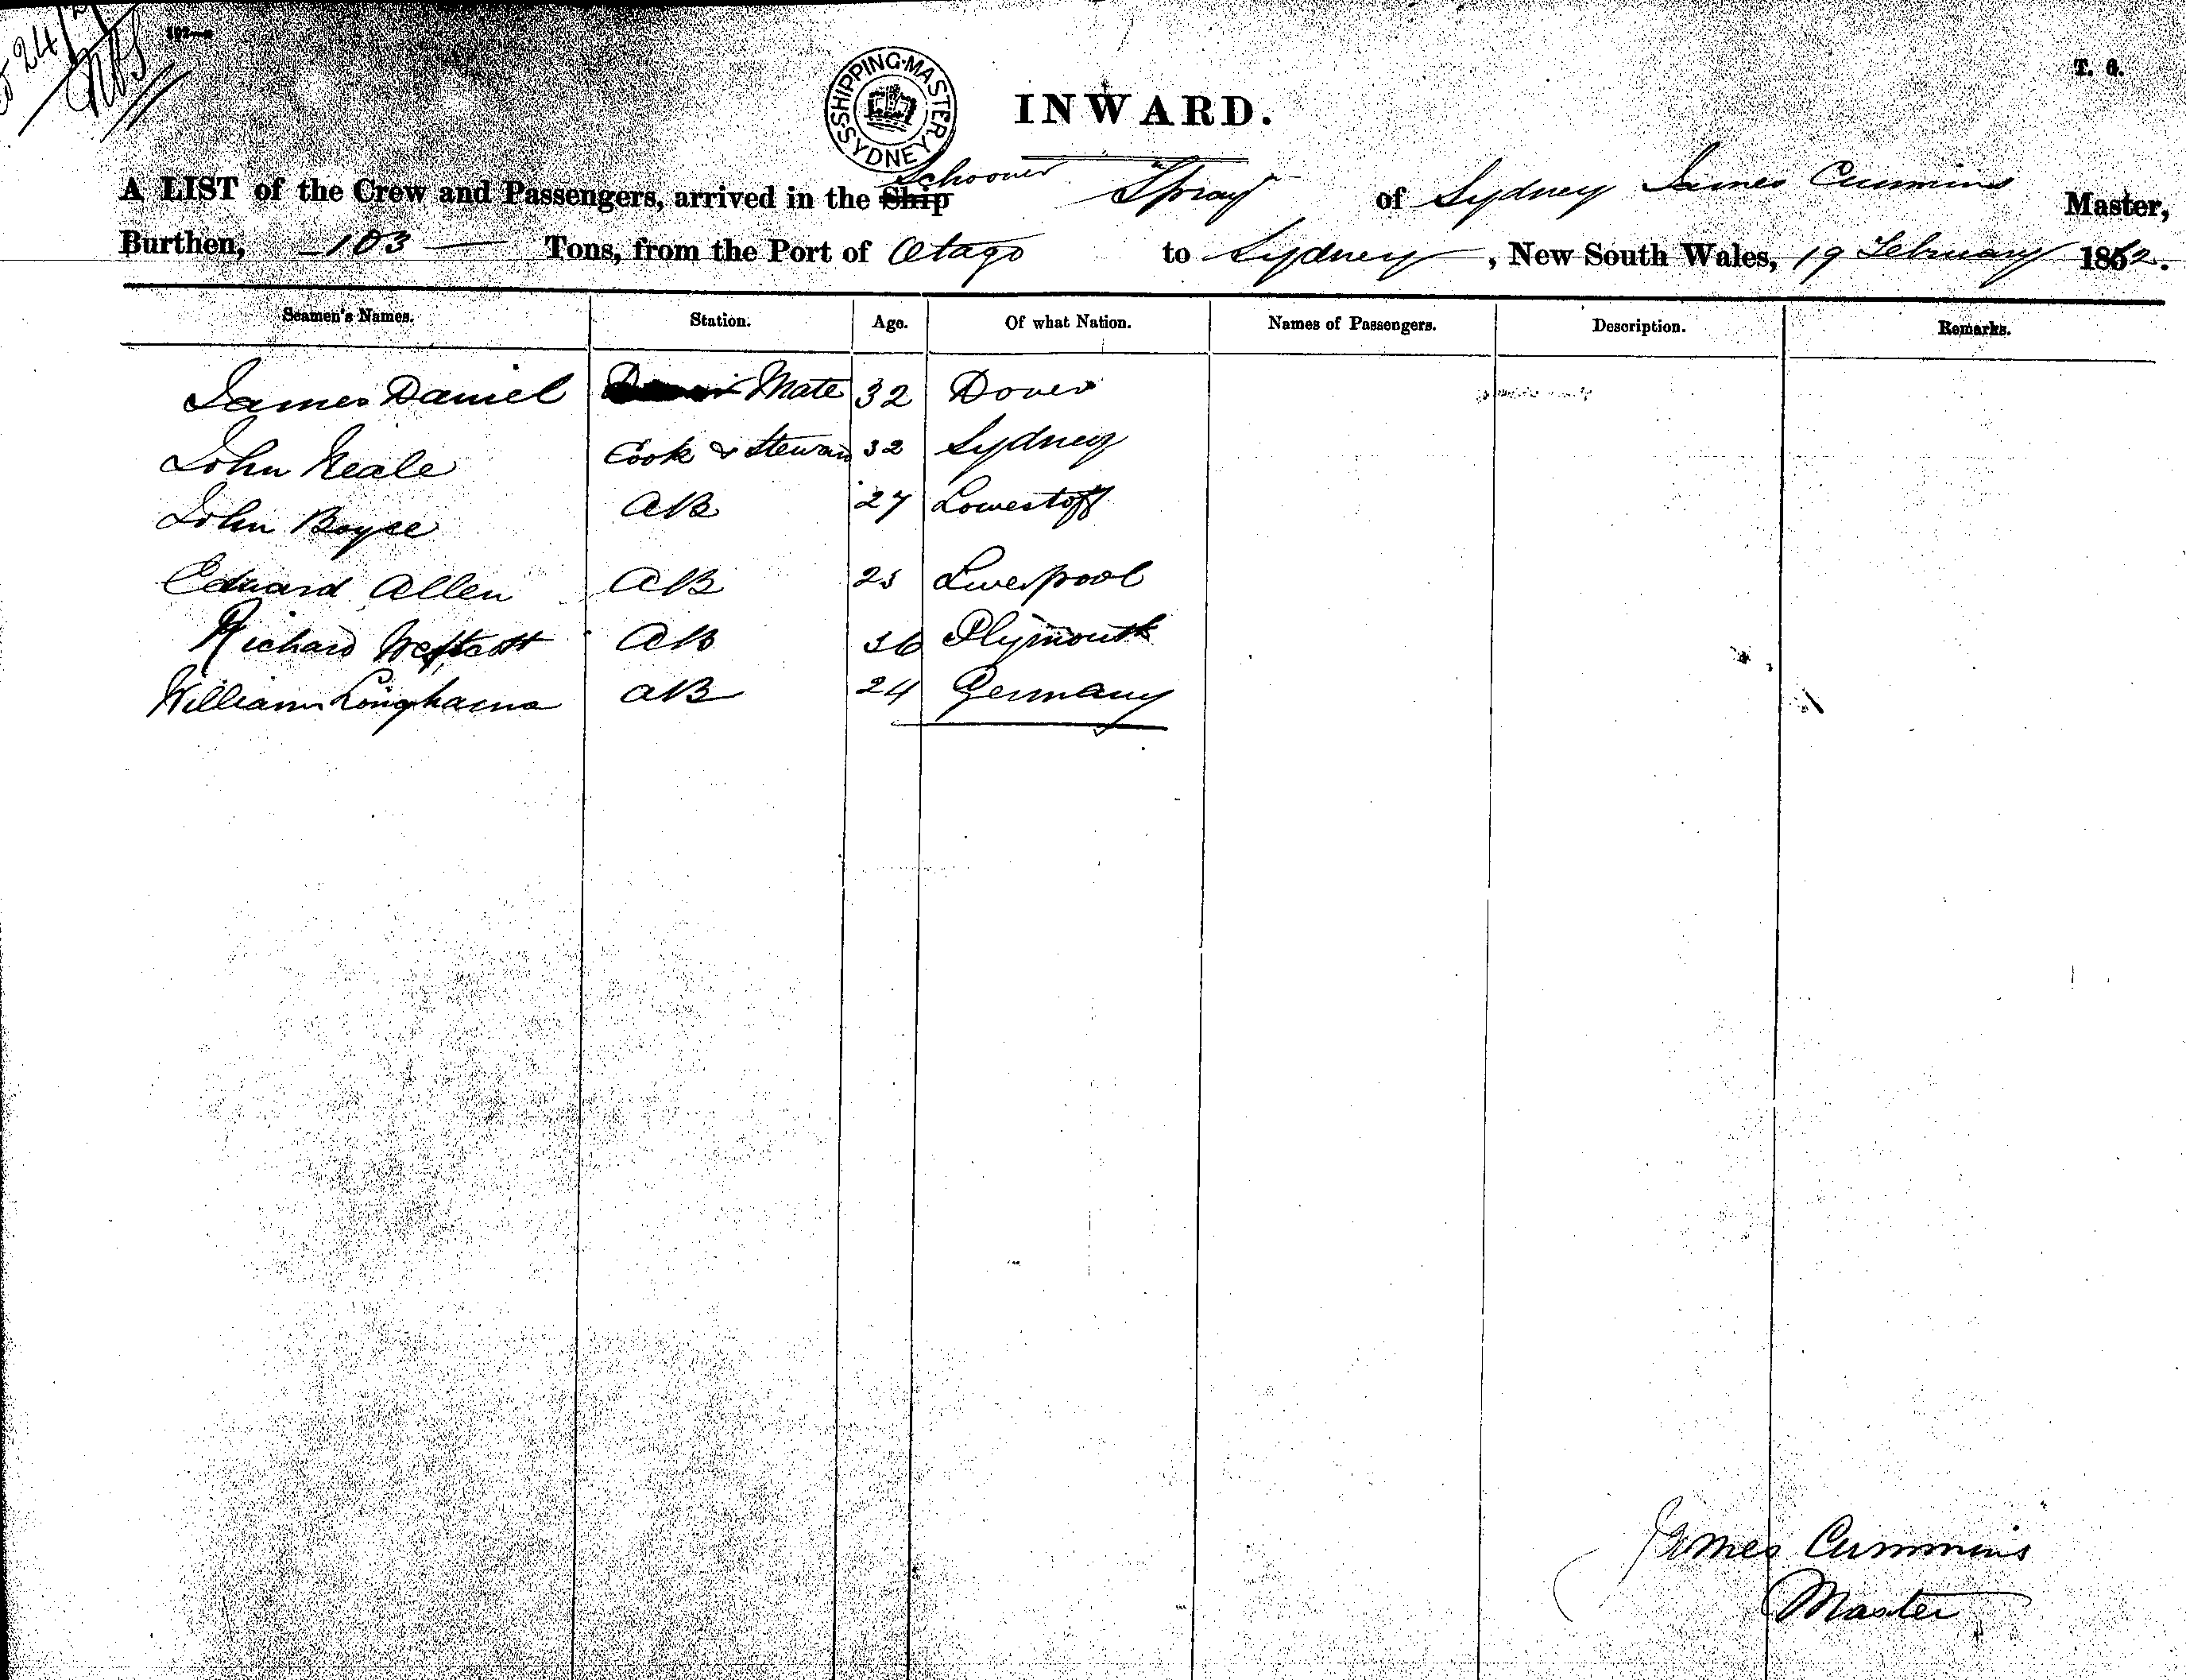 24
SHIPPING MASTER SYDNEY
T. 6.
INWARD.
Schooner
A LIST of the Crew and Passengers, arrived in the Ship "Spray" of Sydney James Cummins Master,
Burthen, 103 Tons, from the Port of Otago to Sydney, New South Wales, 19 February 1862.
Seamen's Names. Station. Age. Of what Nation. Names of Passengers. Description. Remarks.
James Daniel Mate 32 Dover
John Neale Cook & Steward 32 Sydney
John Boyce AB 27 Lowestoff
Edward Allen AB 25 Liverpool
Richard AB 36 Plymouth
William AB 24 Germany
James Cummins
Master